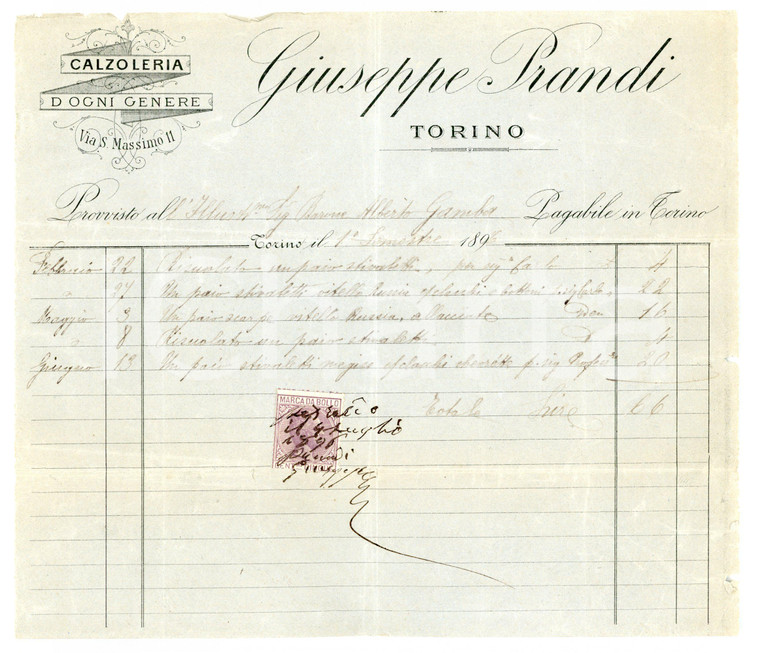 CALZOLERIA
D'OGNI GENERE
Via S. Massimo 11
Giuseppe Prandi
TORINO
Provvisto all'Illust.mo Sig Barone Alberto Gamba Pagabile in Torino
Torino il 1° Semestre 1896
Febbraio 22 Risuolato un paio stivaletti, per 4
" 27 Un paio stivaletti vitello e bottoni 22
Maggio 3 Un paio scarpe vitello Russia, a 16
" 8 Risuolato un paio stivaletti 4
Giugno 13 Un paio stivaletti 20
Totale Lire 66
MARCA DA BOLLO
il 4 Luglio
1896
Prandi
Giuseppe